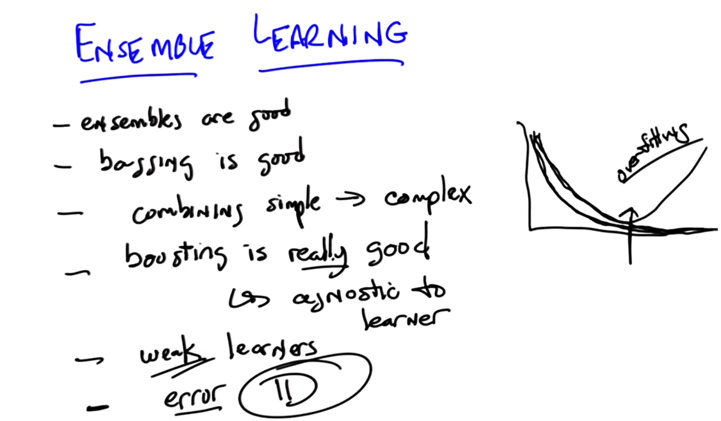 ENSEMBLE LEARNING
- ensembles are good
- bagging is good
- combining simple → complex
- boosting is really good
↳ agnostic to
learner
- weak learners
- error D
overfitting